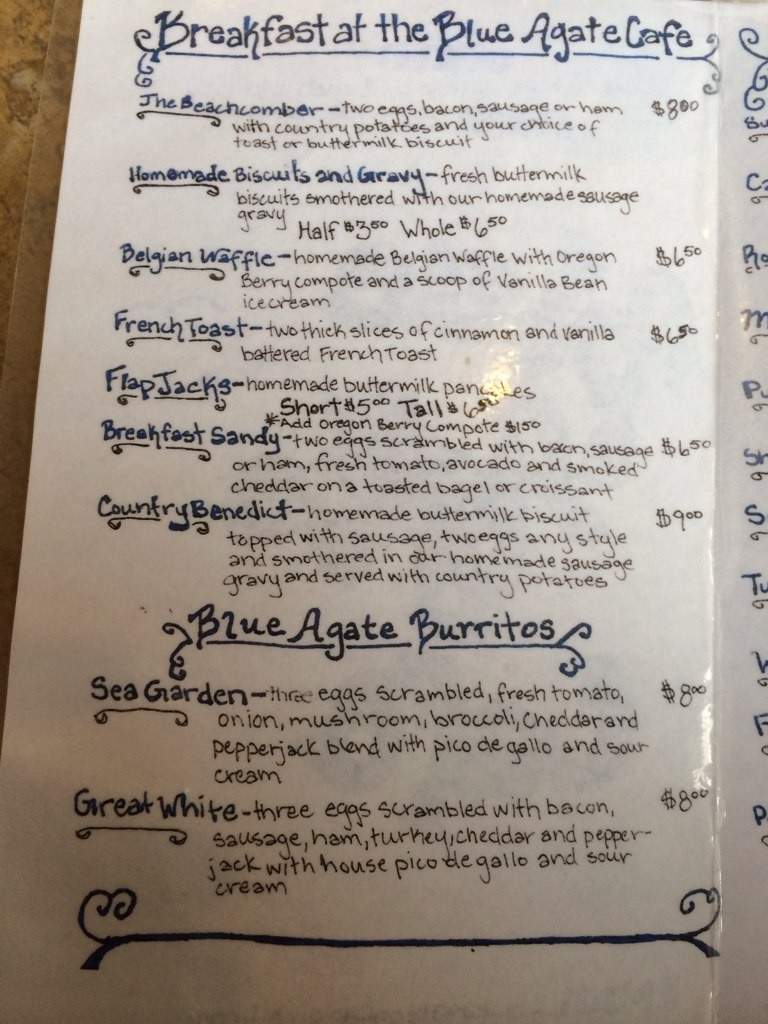 Breakfast at the Blue Agate Cafe
The Beachcomber - two eggs, bacon, sausage or ham $8.00
with country potatoes and your choice of
toast or buttermilk biscuit
Homemade Biscuits and Gravy - fresh buttermilk
biscuits smothered with our homemade sausage
gravy
Half $3.50 Whole $6.50
Belgian Waffle - homemade Belgian Waffle with Oregon $6.50
Berry compote and a scoop of Vanilla Bean
ice cream
French Toast - two thick slices of cinnamon and vanilla $6.50
battered French Toast
Flap Jacks - homemade buttermilk pancakes
Short $5.00 Tall $6.50
*Add Oregon Berry Compote $1.50
Breakfast Sandy - two eggs scrambled with bacon, sausage $6.50
or ham, fresh tomato, avocado and smoked
cheddar on a toasted bagel or croissant
Country Benedict - homemade buttermilk biscuit $9.00
topped with sausage, two eggs any style
and smothered in our homemade sausage
gravy and served with country potatoes
Blue Agate Burritos
Sea Garden - three eggs scrambled, fresh tomato, $8.00
onion, mushroom, broccoli, cheddar and
pepperjack blend with pico de gallo and sour
cream
Great White - three eggs scrambled with bacon, $8.00
sausage, ham, turkey, cheddar and pepper-
jack with house pico de gallo and sour
cream